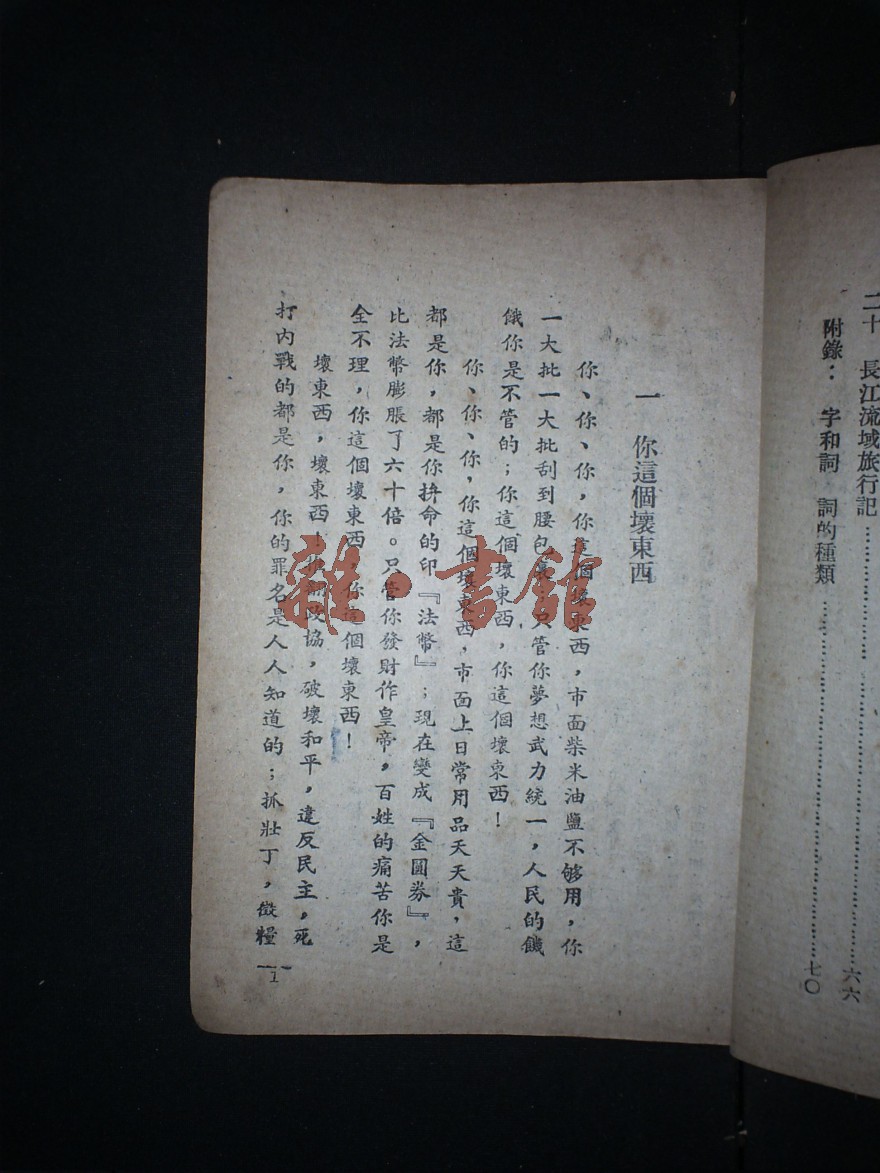 二十　長江流域旅行記……六六
附錄：　字和詞　詞的種類……七〇
一　你這個壞東西
你、你、你，你這個壞東西，市面柴米油鹽不够用，你
一大批一大批刮到腰包裏，只管你夢想武力統一，人民的饑
餓你是不管的；你這個壞東西，你這個壞東西！
你、你、你，你這個壞東西，市面上日常用品天天貴，這
都是你，都是你拚命的印『法幣』；現在變成『金圓券』，
比法幣膨脹了六十倍。只管你發財作皇帝，百姓的痛苦你是
全不理，你這個壞東西，你這個壞東西！
壞東西，壞東西！推翻政協，破壞和平，違反民主，死
打內戰的都是你，你的罪名是人人知道的；抓壯丁，徵糧
1
雜·書館